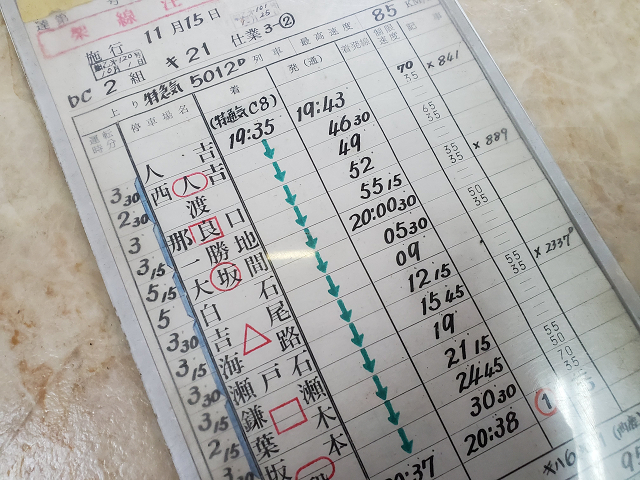 架線注
施行 11月15日
キ21 仕業3-②
DC 2組
上り 特急気 5012D 列車 最高速度 85 KM
運転時分 停車場名 着 発(通) 着発線 制限速度 記事
(特通気C8)
人吉 19:35 19:43 70 35 ×841
3 30 西人吉 46 30
2 30 渡 49 65 35
3 那良口 52 35 35 ×889
3 15 一勝地 55 15
5 15 大坂間 20:00 30 50 35
5 白石 05 30
3 30 吉尾 09 55 35 ×2337
3 15 海路 12 15
3 30 瀬戸石 15 45
3 15 鎌瀬 19 55 50
2 15 葉木 21 15 70 35
3 30 坂本 24 45
30 30 1
20:37 20:38